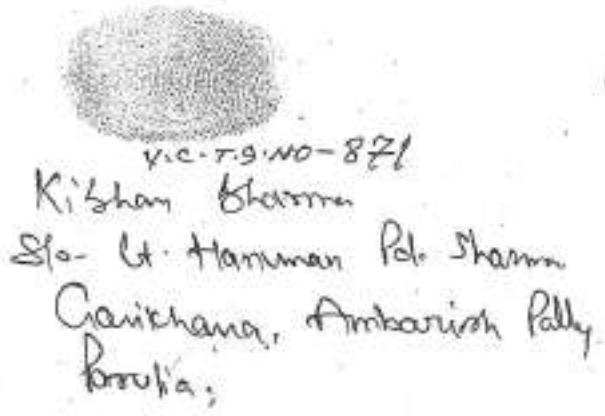 V.C.T.S.NO-871
Kishan Sharma
S/o- Lt. Hanuman Pd. Sharma
Garikhana, Ambarish Pally